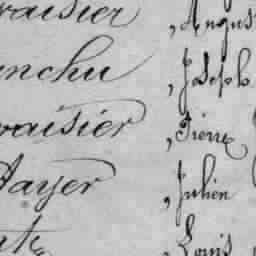 raisier , Augus
nchu , Joseph
raisier , Pierre
Hayer , Julien
, Louis